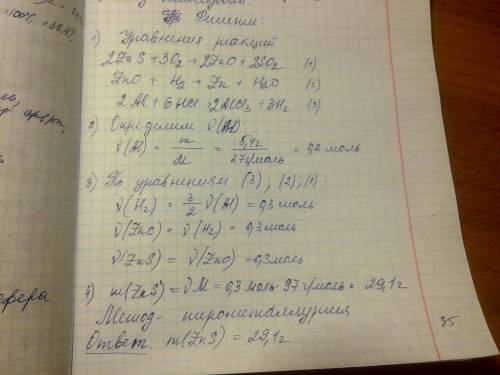 100% = 38,7%
Решение:
1) Уравнения реакций
2ZnS + 3O₂ → 2ZnO + 2SO₂ (1)
ZnO + H₂ → Zn + H₂O (2)
2Al + 6HCl → 2AlCl₃ + 3H₂ (3)
2) Определим ν(Al):
ν(Al) = m/M = 5,4г/27г/моль = 0,2 моль
3) По уравнениям (3), (2), (1):
ν(H₂) = 3/2 ν(Al) = 0,3 моль
ν(ZnO) = ν(H₂) = 0,3 моль
ν(ZnS) = ν(ZnO) = 0,3 моль
4) m(ZnS) = νM = 0,3 моль · 97 г/моль = 29,1 г
Метод - пирометаллургия
Ответ. m(ZnS) = 29,1 г
85